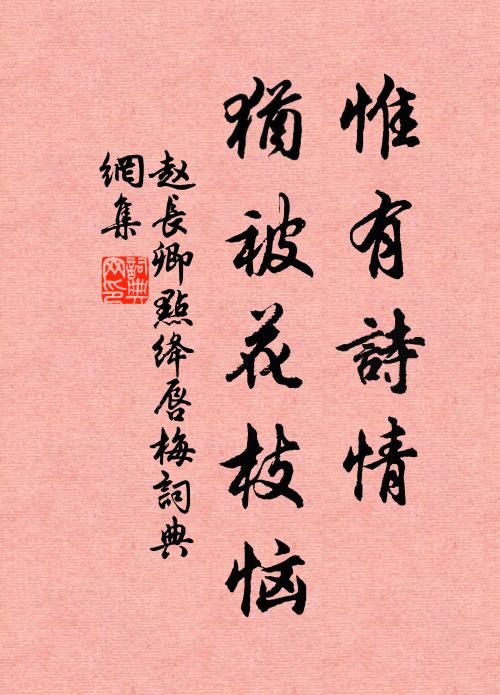 惟有詩情
猶被花枝恼
赵長卿點绛唇梅詞典
網集
詞典網印